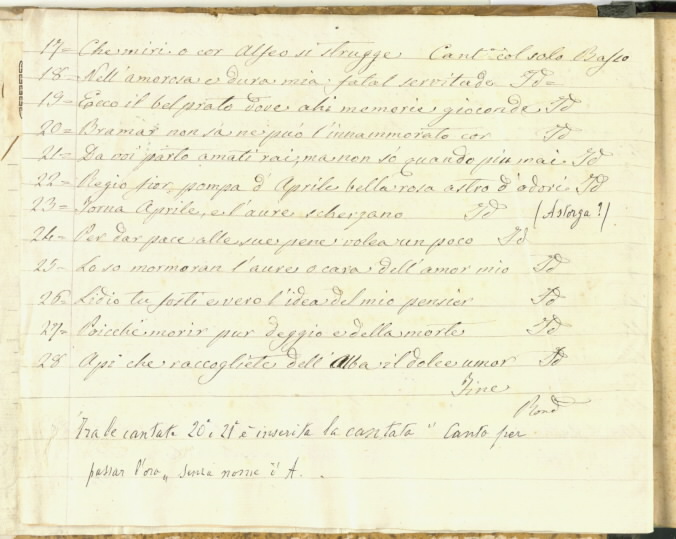 17= Che miri o cor Alfeo si strugge Cant.ª col solo Basso
18= Nell'amorosa e dura mia fatal servitude Id=
19= Ecco il bel prato dove ahi memorie gioconde Id
20= Bramar non sà ne può l'innammorato cor Id
21= Da voi parto amati rai, ma non só quando piu mai Id
22= Regio fior, pompa d'Aprile bella rosa astro d'odori Id
23= Torna Aprile, e l'aure scherzano Id (Astorga?)
24= Per dar pace alle sue pene volea un poco Id
25= Lo so mormoran l'aure o cara dell'amor mio Id
26= Lidio tu fosti e vero l'idea del mio pensier Id
27= Poicchè morir pur deggio e della morte Id
28 Api che raccogliete dell'Alba il dolce umor Id
Fine
Tra le cantate 20ª e 21ª è inserita la cantata " Canto per
passar l'ora,, senza nome d'A.